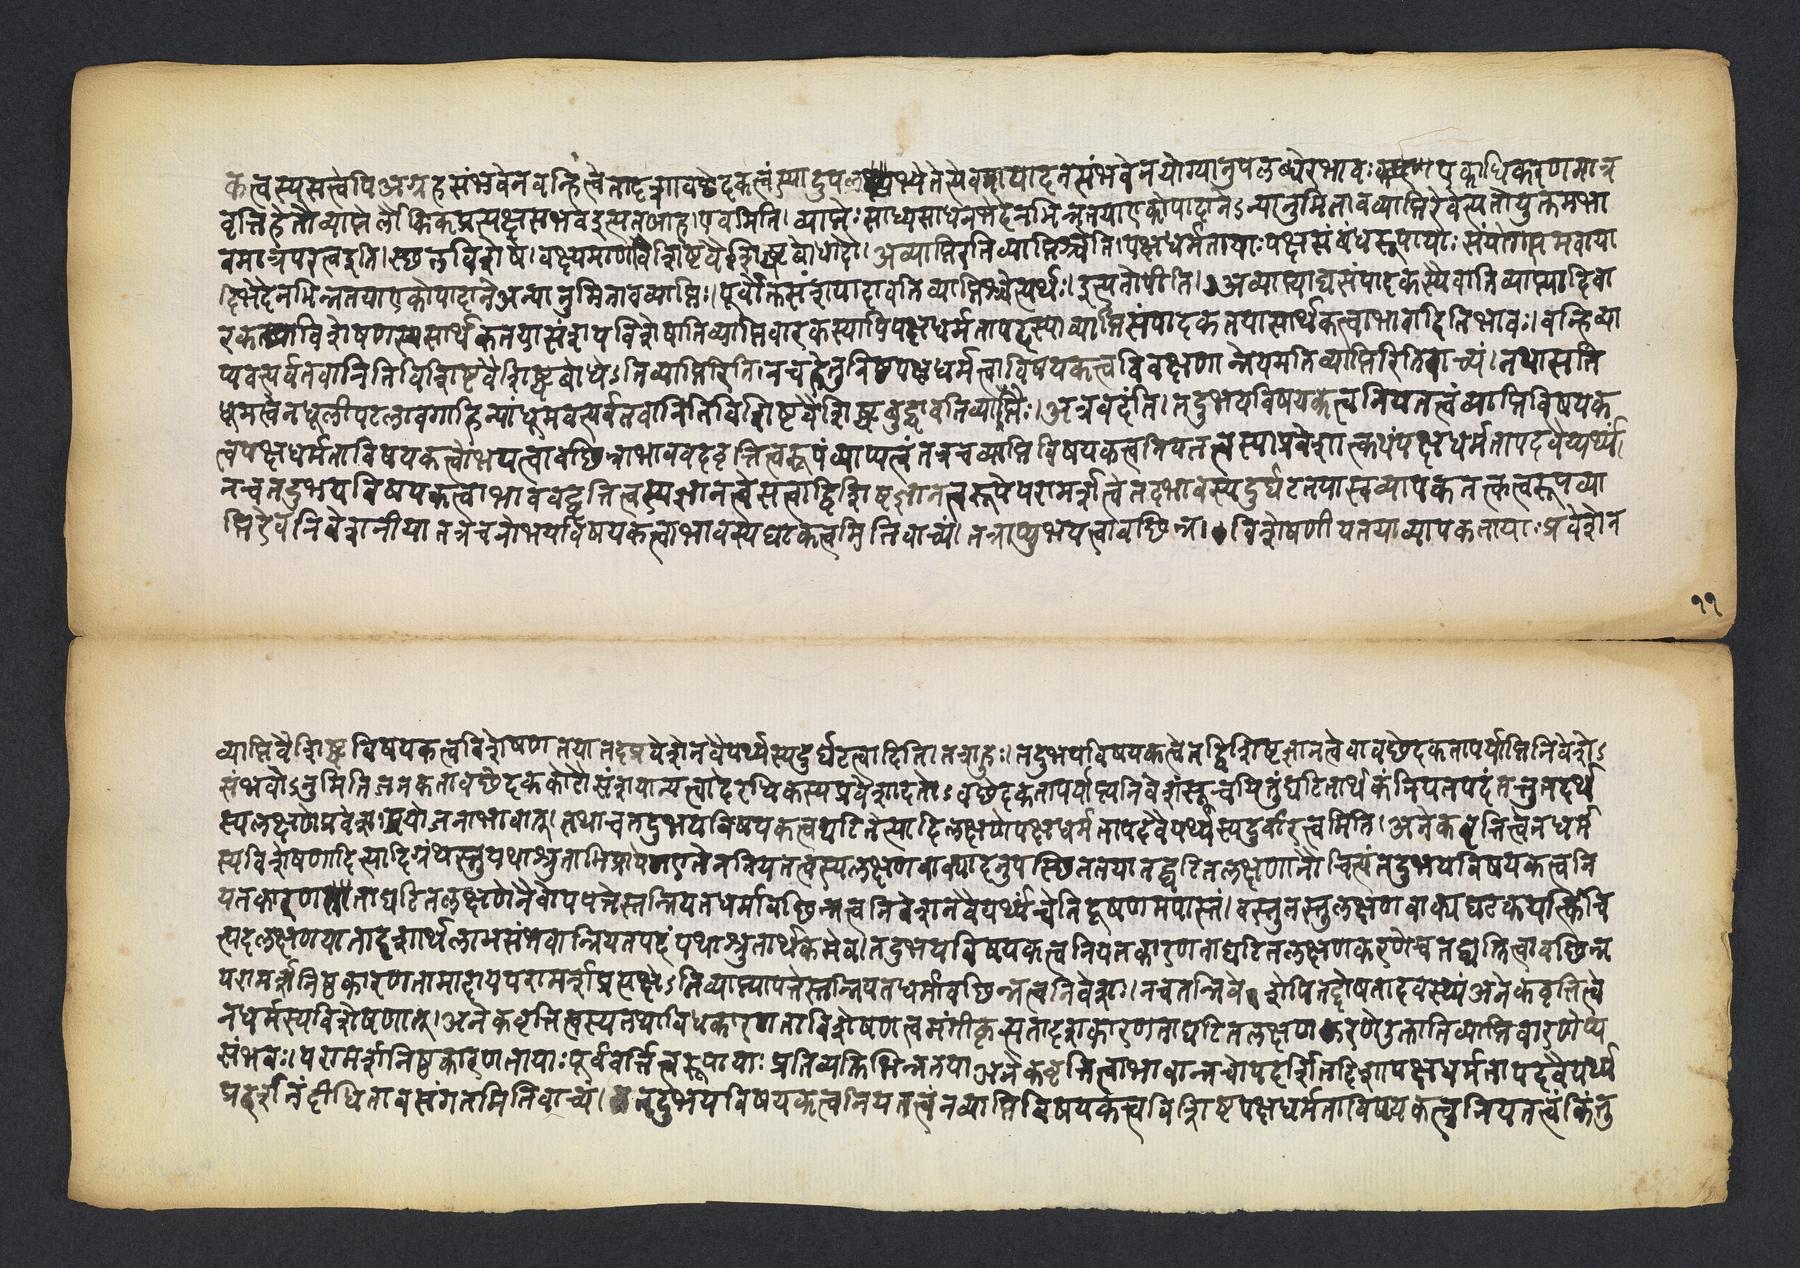 कत्वस्य सत्वेपि अग्रहसंभवेन वन्हित्वे तादृशावछेदकत्वं स्यादुपलभ्येतेत्येवमापादनसंभवेन योग्यानुपलब्धेरभावः एकाधिकरणमात्र
वृत्ति हेतौ व्याप्ते लौकिकप्रत्यक्षासंभव इत्यत आह। एवमिति। व्याप्तेः साध्यसाधनभेदेन भिन्नतया एकोपादाने ऽन्यानुमितावव्याप्तिरेवेत्यतो युक्तमभा
वमात्रपरत्व इति। स्थलविशेषे। वक्ष्यमाणविशिष्टवैशिष्ट्यबोधादौ। अव्याप्तिरतिव्याप्तिश्चेति। पक्षधर्मतायाः पक्षसंबंधरूपायाः संयोगसमवाया
दिभेदेन भिन्नतया एकोपादाने अन्यानुमितावव्याप्तिः। पूर्वोक्तसंशयादावतिव्याप्तिश्चेत्यर्थः। इत्यतोपीति। अव्याप्त्याद्यसंपादकस्यैवातिव्याप्त्यादिवा
रकतया विशेषणस्य सार्थकतया संशयविशेषातिव्याप्तिवारकस्यापि पक्षधर्मतापदस्याव्याप्तिसंपादकतया सार्थकत्वाभावादिति भावः। वन्हिव्या
प्यवत्पर्वतवानिति विशिष्टवैशिष्ट्यबोधे ऽतिव्याप्तिरिति। नच हेतुनिष्ठपक्षधर्मत्वाविषयकत्वविवक्षणान्नेयमतिव्याप्तिरिति वाच्यं। तथासति
धूमत्वेन धूलीपटलावगाहिन्यां धूमवत्पर्वतवानिति विशिष्टवैशिष्ट्यबुद्धावतिव्याप्तेः। अत्र वदंति। तदुभयविषयकत्वनियतत्वं व्याप्तिविषयक
त्वपक्षधर्मताविषयकत्वोभयत्वावछिन्नाभाववदवृत्तित्वरूपं व्याप्यत्वं तत्र च व्याप्तिविषयकत्वनियतत्वस्याप्रवेशात्कथं पक्षधर्मतापदवैय्यर्थ्यं।
नच तदुभयविषयकत्वाभाववद्वृत्तित्वस्य ज्ञानत्वे सत्वाद्विशिष्टज्ञानत्वरूपे परामर्शत्वे तदभावस्य दुर्घटतया स्वव्यापकतत्कत्वरूपव्या
प्तिरेव निवेशनीया तत्र च नोभयविषयकत्वाभावस्य घटकत्वमिति वाच्यं। तत्राप्युभयत्वावछिन्न। विशेषणीयतया व्यापकतायाः प्रवेशेन
११
व्याप्तिवैशिष्ट्यविषयकत्वविशेषणतया तदप्रवेशेन वैयर्थ्यस्य दुर्घटत्वादिति। तत्राहुः। तदुभयविषयकत्वेन तद्विशिष्टज्ञानत्वे वावछेदकतापर्याप्तिनिवेशे ऽ
संभवो ऽनुमितिजनकतावछेदककोटौ संशयान्यत्वादेरधिकस्य प्रवेशादतो ऽवछेदकतापर्याप्त्यनिवेशं सूचयितुं घटितार्थकं नियतपदं नतु तदर्थ
स्य लक्षणे प्रवेशः प्रयोजनाभावात्। तथाच तदुभयविषयकत्वघटितेत्यादिलक्षणे पक्षधर्मतापदवैयर्थ्यस्य दुर्वारत्वमिति। अनेकवृत्तित्वेन धर्म
स्य विशेषणादित्यादिग्रंथस्तु यथाश्रुताभिप्रायेण एतेन नियतत्वस्य लक्षणवाक्यादनुपस्थिततया तद्घटितलक्षणानौचित्यं तदुभयविषयकत्वनि
यतकारणताघटितलक्षणेनैवोपपत्तेस्तन्नियतधर्मावछिन्नत्वनिवेशनवैयर्थ्यं चेति दूषणमपास्तं। वस्तुतस्तु लक्षणवाक्यघटकयत्किंचि
त्पदलक्षणया तादृशार्थलाभसंभवान्नियतपदं यथाश्रुतार्थकमेव। तदुभयविषयकत्वनियतकारणताघटितलक्षणकरणे च तद्व्यक्तित्वावछिन्न
परामर्शनिष्ठकारणतामादाय परामर्शप्रत्यक्षे ऽतिव्याप्त्यापत्तेस्तन्नियतधर्मावछिन्नत्वनिवेशः। नच तन्निवेशेपि तद्दोषतादवस्थ्यं अनेकवृत्तित्वे
न धर्मस्य विशेषणात्। अनेकवृत्तित्वस्य तथाविधकारणताविशेषणत्वमंगीकृत्य तादृशकारणताघटितलक्षणकरणे उक्तातिव्याप्तिवारणेप्य
संभवः। परामर्शनिष्ठकारणतायाः पूर्ववर्तित्वरूपायाः प्रतिव्यक्तिभिन्नतया अनेकवृत्तित्वाभावान्नचोपदर्शितदिशा पक्षधर्मतापदवैयर्थ्य
प्रदर्शनं दीधितावसंगतमिति वाच्यं। तदुभयविषयकत्वनियतत्वं न व्याप्तिविषयकत्वविशिष्टपक्षधर्मताविषयकत्वनियतत्वं किंतु